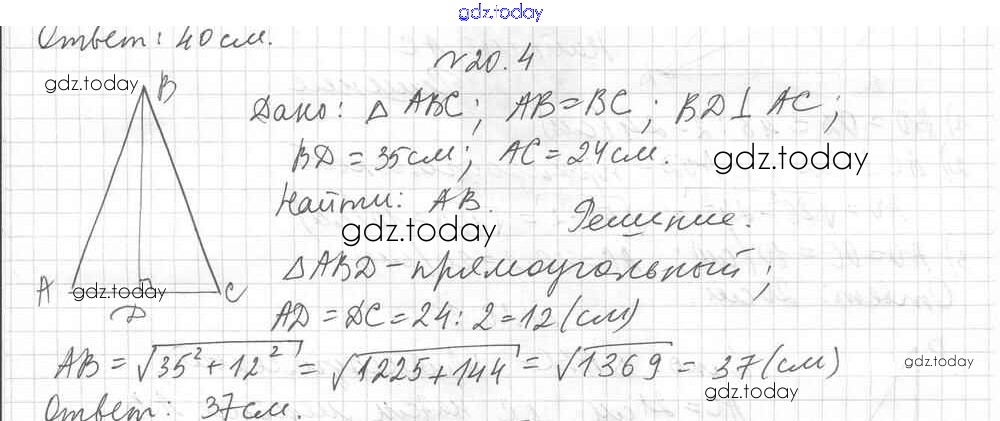 gdz.today
Ответ: 40 см.
№20.4
gdz.today
B
Дано: △ ABC; AB = BC; BD ⊥ AC;
BD = 35 см; AC = 24 см.
gdz.today
Найти: AB.
gdz.today
Решение.
△ABD - прямоугольный;
A
gdz.today
C
D
AD = DC = 24 : 2 = 12 (см)
AB = √35² + 12² = √1225 + 144 = √1369 = 37 (см)
gdz.today
gdz.today
Ответ: 37 см.